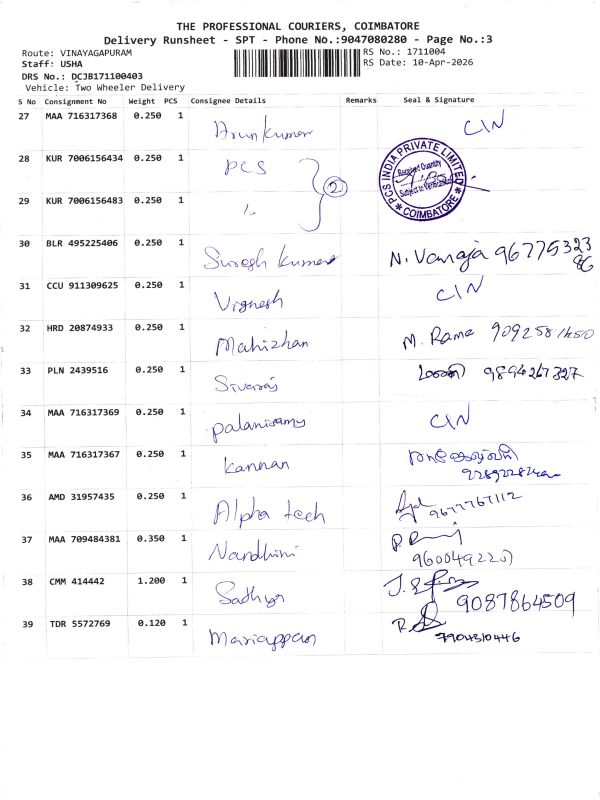 THE PROFESSIONAL COURIERS, COIMBATORE
Delivery Runsheet - SPT - Phone No.:9047080280 - Page No.:3
Route: VINAYAGAPURAM RS No.: 1711004
Staff: USHA RS Date: 10-Apr-2026
DRS No.: DCJB171100403
Vehicle: Two Wheeler Delivery
S No Consignment No Weight PCS Consignee Details Remarks Seal & Signature
27 MAA 716317368 0.250 1 Arunkumar C/N
28 KUR 7006156434 0.250 1 PCS
PCS INDIA PRIVATE LIMITED
Received Quantity
Subject to Verification
COIMBATORE
2
29 KUR 7006156483 0.250 1 "
30 BLR 495225406 0.250 1 Suresh Kumar N. Vanaja 96775323
86
31 CCU 911309625 0.250 1 Vignesh C/N
32 HRD 20874933 0.250 1 Mahizhan M. Rama
33 PLN 2439516 0.250 1 9894267327
34 MAA 716317369 0.250 1 palanisamy C/N
35 MAA 716317367 0.250 1 Kannan
36 AMD 31957435 0.250 1 Alpha tech 9677767112
37 MAA 709484381 0.350 1 Nandhini
38 CMM 414442 1.200 1 Sathya 9087864509
39 TDR 5572769 0.120 1 Mariappan 7904310446